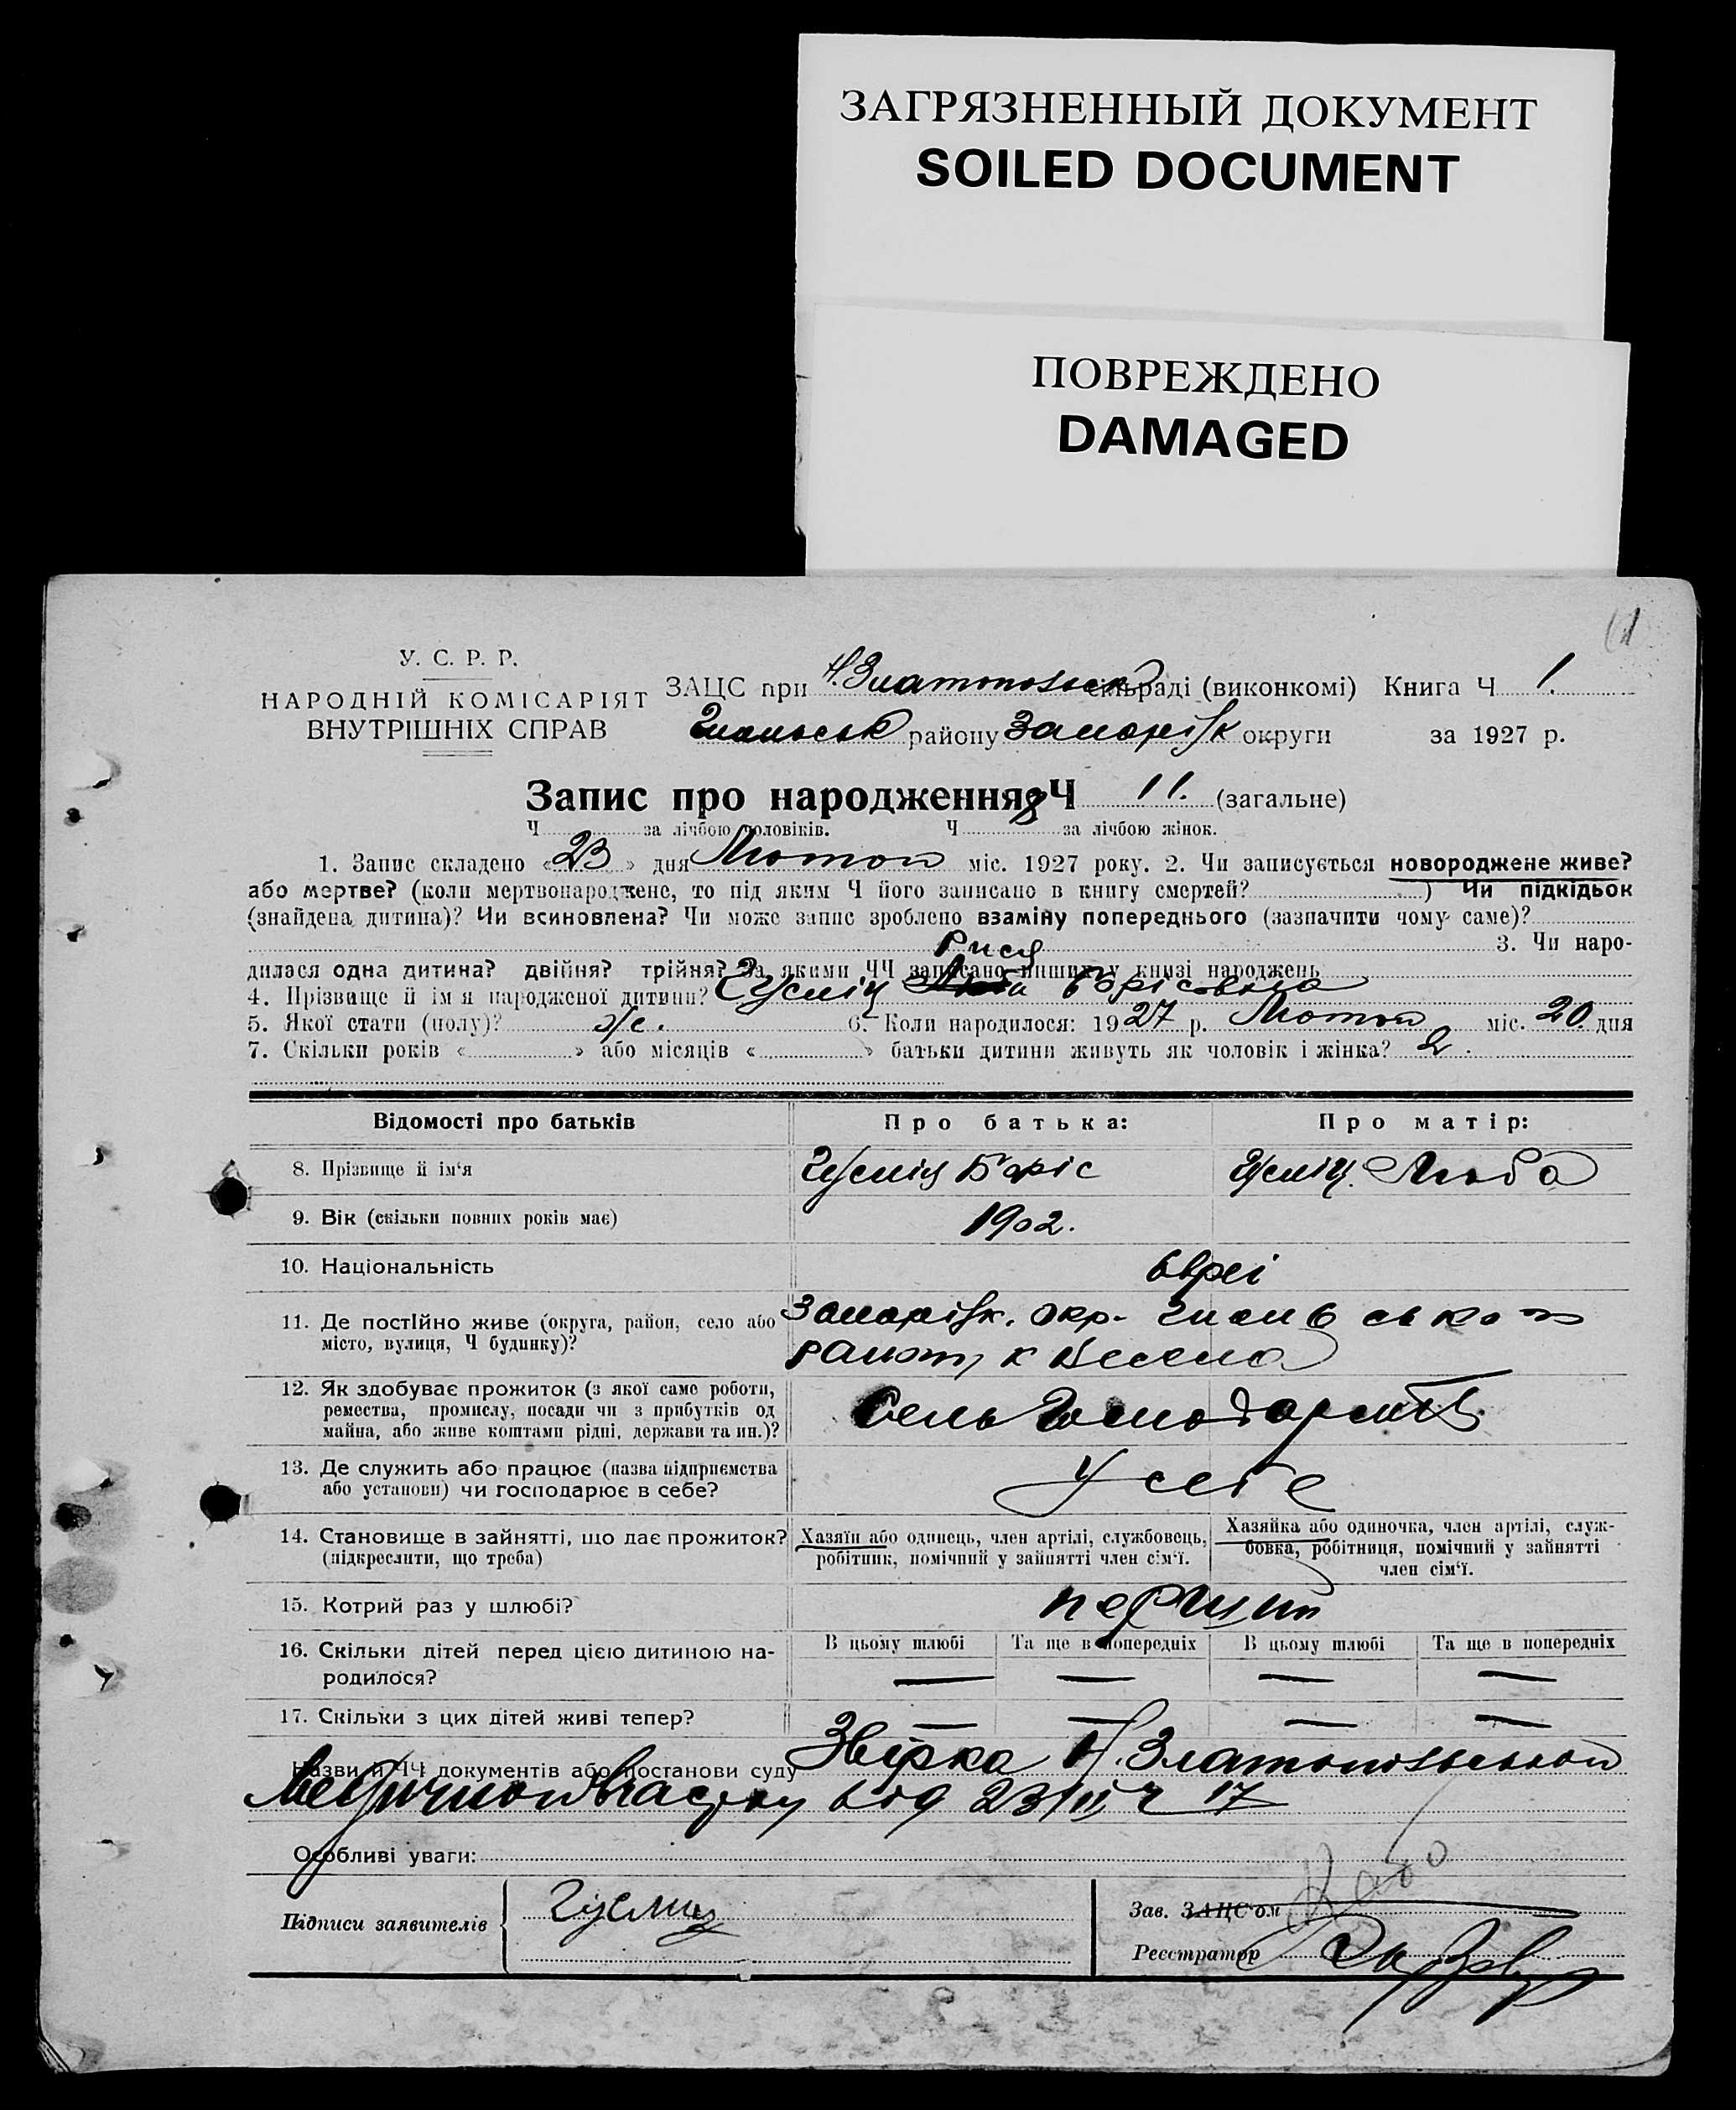 ЗАГРЯЗНЕННЫЙ ДОКУМЕНТ
SOILED DOCUMENT
ПОВРЕЖДЕНО
DAMAGED
У. С. Р. Р.
НАРОДНІЙ КОМІСАРІЯТ
ВНУТРІШНІХ СПРАВ
ЗАЦС при Н. Златопольськ сільраді (виконкомі) Книга Ч 1.
району Запоріжк округи за 1927 р.
Запис про народження Ч 11. (загальне)
Ч за лічбою чоловіків. Ч 8 за лічбою жінок.
1. Запис складено «23» дня Лютого міс. 1927 року. 2. Чи записується новороджене живе?
або мертве? (коли мертвонароджене, то під яким Ч його записано в книгу смертей? ) Чи підкідьок
(знайдена дитина)? Чи всиновлена? Чи може запис зроблено взаміну попереднього (зазначити чому саме)?
3. Чи наро-
дилася одна дитина? двійня? трійня? За якими ЧЧ записано инших у книзі народжень
Рися
4. Прізвище й ім'я народженої дитини? Гусміц Борісовна
5. Якої стати (полу)? Же. 6. Коли народилося: 1927 р. Лютого міс. 20. дня
7. Скільки років « » або місяців « » батьки дитини живуть як чоловік і жінка? 2.
Відомості про батьків
Про батька:
Про матір:
8. Прізвище й ім'я
Гусміц Боріс
Гусміц. Люба
9. Вік (скільки повних років має)
1902.
10. Національність
Євреі
11. Де постійно живе (округа, район, село або
місто, вулиця, Ч будинку)?
Запоріжк. окр.
к Весела
12. Як здобуває прожиток (з якої саме роботи,
ремества, промислу, посади чи з прибутків од
майна, або живе коштами рідні, держави та ин.)?
Сель Господарств.
13. Де служить або працює (назва підприємства
або установи) чи господарює в себе?
У себе
14. Становище в зайнятті, що дає прожиток?
(підкреслити, що треба)
Хазяїн або одинець, член артілі, службовець,
робітник, помічний у зайнятті член сім'ї.
Хазяйка або одиночка, член артілі, служ-
бовка, робітниця, помічний у зайнятті
член сім'ї.
15. Котрий раз у шлюбі?
перший
16. Скільки дітей перед цією дитиною на-
родилося?
В цьому шлюбі
Та ще в попередніх
В цьому шлюбі
Та ще в попередніх
— — — —
17. Скільки з цих дітей живі тепер?
— — — —
Назви й ЧЧ документів або постанови суду Звірка Н. Златопольської
від 23/II Ч 17
Особливі уваги:
Підписи заявителів
Гусмиц
Зав. ЗАЦС'ом
Реєстратор